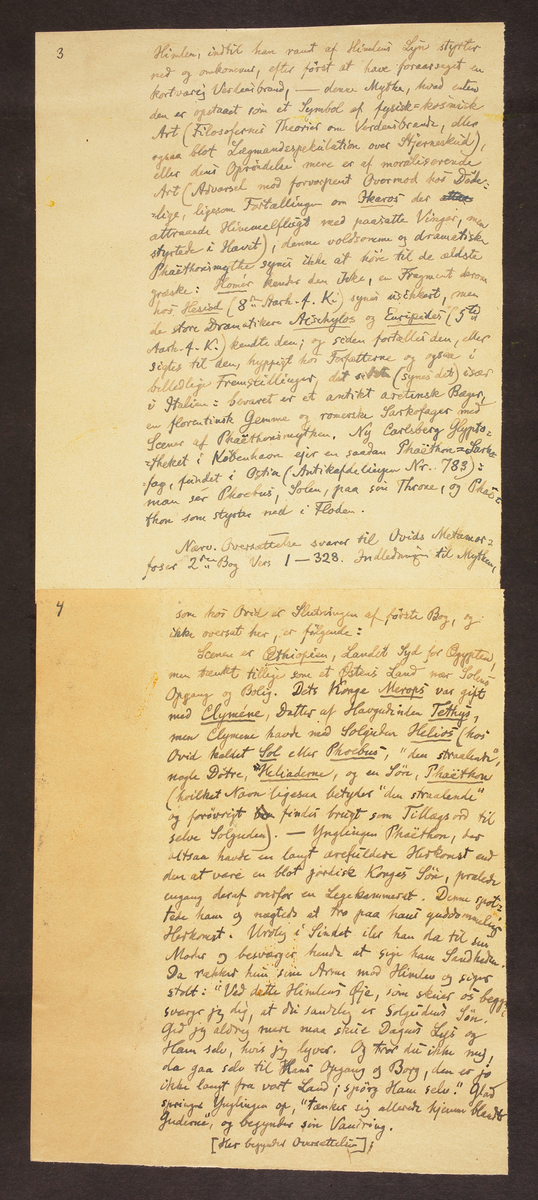 3
Himlen, indtil han ramt af Himlens Lyn styrter
ned og omkommer, efter først at have foraarsaget en
kortvarig Verdensbrand, — denne Mythe, hvad enten
den er opstaaet som et Symbol af fysisk-kosmisk
Art (Filosofernes Theorier om Verdensbrande, eller
ogsaa blot Lægmandsspekulation over Stjerneskud),
eller dens Oprindelse mere er af moraliserende
Art (Advarsel mod forvovent Overmod hos Døde-
=lige, ligesom Fortællingen om Ikaros der
attraaede Himmelflugt med paasatte Vinger, men
styrtede i Havet), denne voldsomme og dramatiske
Phaëthonsmythe synes ikke at høre til de ældste
græske: Homer kender den ikke, en Fragment derom
hos Hesiod (8de Aarh. f. K.) synes usikkert, men
de store Dramatikere Aischylos og Euripides (5te
Aarh. f. K.) kendte den; og siden fortælles den, eller
sigtes til den, hyppigt hos Forfatterne og ogsaa i
billedlige Fremstillinger, (synes det) især
i Italien: bevaret er et antikt aretinsk Bæger,
en florentinsk Gemme og romerske Sarkofager med
Scener af Phaëthonsmythen. Ny Carlsberg Glypto-
=theket i København ejer en saadan Phaëthon=Sarko-
=fag, fundet i Ostia (Antikafdelingen Nr. 783):
man ser Phoebus, Solen, paa sin Throne, og Phaë-
thon som styrter ned i Floden.
Nærv. Oversættelse svarer til Ovids Metamor=
foser 2den Bog Vers 1 — 328. Indledningen til Mythen,
4
som hos Ovid er Slutningen af første Bog, og
ikke oversat her, er følgende:
Scenen er Æthiopien, Landet Syd for Ægypten,
men tænkt tillige som et Østens Land nær Solens
Opgang og Bolig. Dets Konge Merops var gift
med Clymene, Datter af Havgudinden Tethys,
men Clymene havde med Solguden Helios (hos
Ovid kaldet Sol eller Phoebus, "den straalende",
nogle Døtre, "Heliaderne, og en Søn, Phaëthon
(hvilket Navn ligesaa betyder "den straalende"
og forøvrigt findes brugt som Tillægsord til
selve Solguden). — Ynglingen Phaëthon, der
altsaa havde en langt ærefuldere Herkomst end
den at være en blot jordisk Konges Søn, pralede
engang deraf overfor en Legekammerat. Denne spot-
tede ham og nægtede at tro paa hans guddommelige
Herkomst. Urolig i Sindet iler han da til sin
Moder og besværger hende at sige ham Sandheden.
Da rækker hun sine Arme mod Himlen og siger
stolt: "Ved dette Himlens Øje, som skuer os begge,
sværger jeg dig, at du sandelig er Solgudens Søn.
Gid jeg aldrig mere maa skue Dagens Lys og
Ham selv, hvis jeg lyver. Og tror du ikke mig,
da gaa selv til Hans Opgang og Borg, den er jo
ikke langt fra vort Land; spørg Ham selv." Glad
springer Ynglingen op, "tænker sig allerede hjemme blandt
Guderne", og begynder sin Vandring.
[Her begynder Oversættelsen];